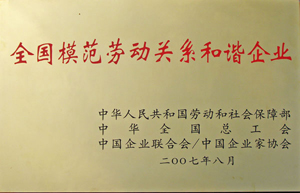 全国模范劳动关系和谐企业
中华人民共和国劳动和社会保障部
中华全国总工会
中国企业联合会/中国企业家协会
二〇〇七年八月